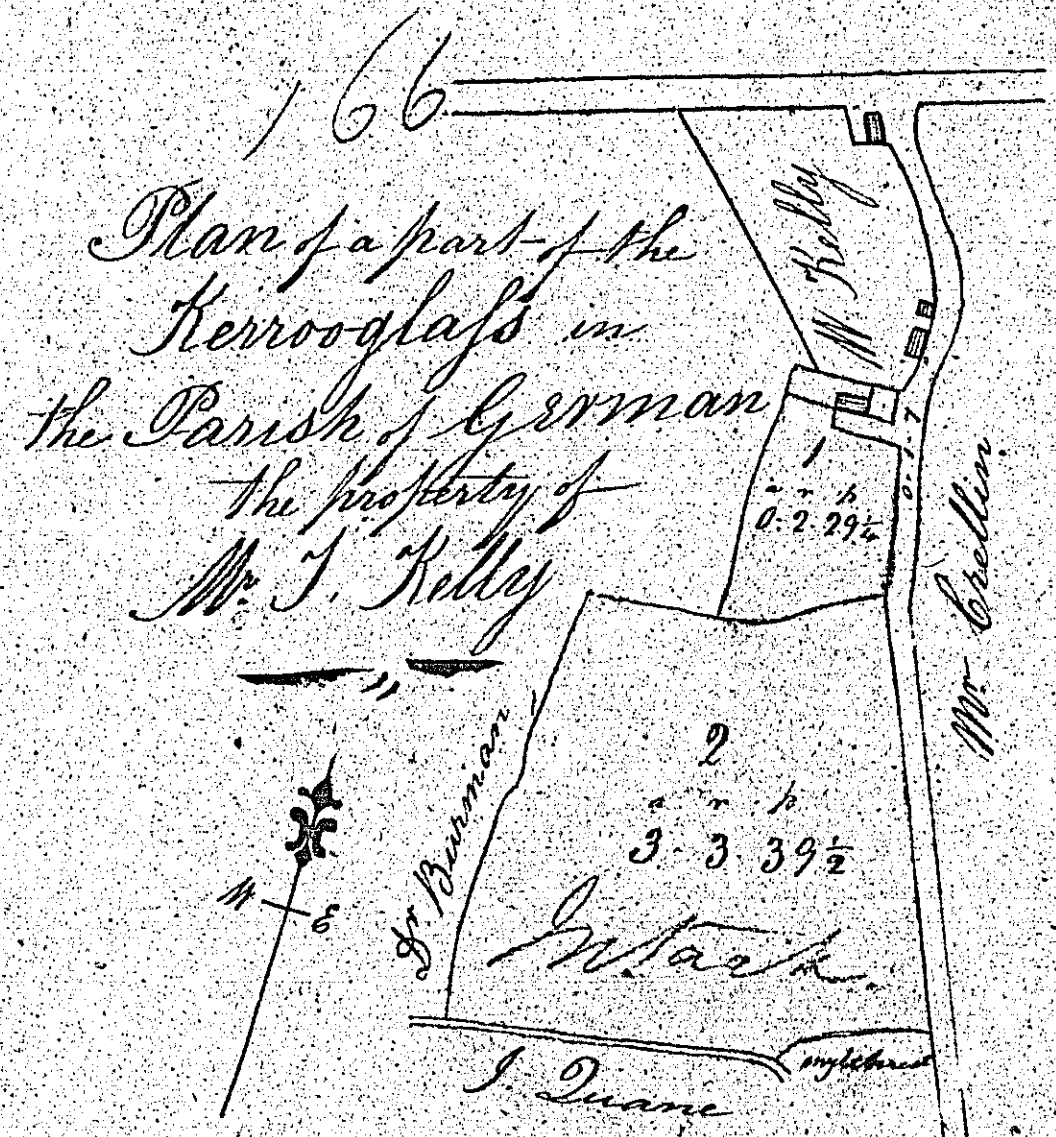 166
Plan of a part of the
Kerrooglass in
the Parish of German
the property of
Mr. T. Kelly
W Kelly
1
a r p
0. 2. 29 1/4
0. 1. 7
Mr. Crellin
2
a r p
3. 3. 39 1/2
Intack
Dr. Burman
W E
J. Quane